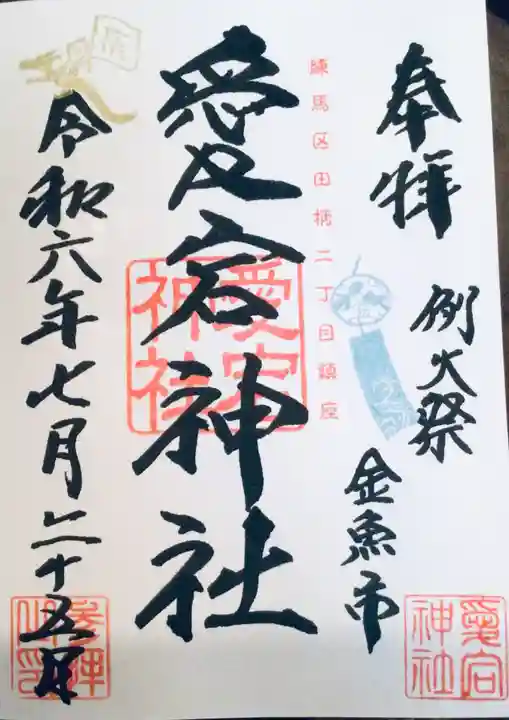 奉拝
例大祭
金魚市
練馬区田柄二丁目鎮座
愛宕神社
愛宕神社
令和六年七月二十五日
愛宕神社
参拝